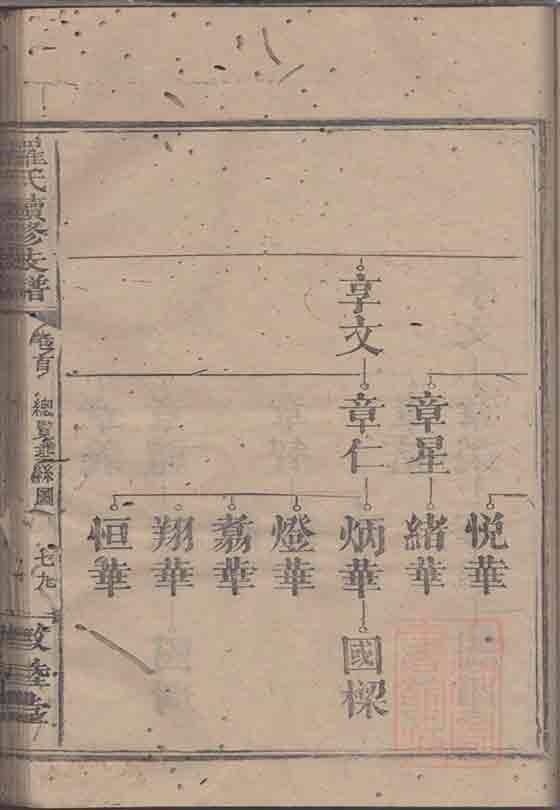 享文
章星
章仁
悦華
緒華
炳華
燈華
翥華
翔華
恒華
國樑
羅氏續修支譜
卷首
總覽垂絲圖
七九
敦睦堂